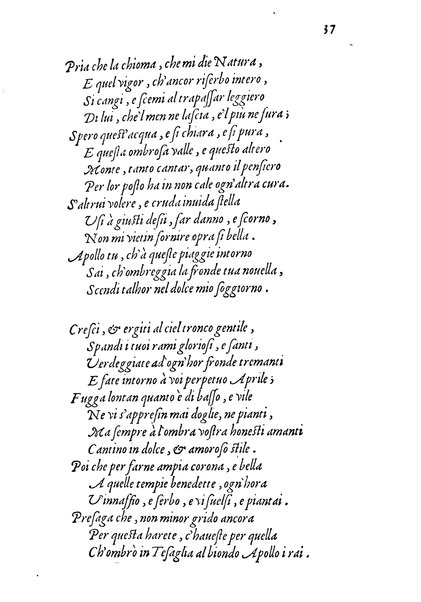 37
Pria che la chioma, che mi diè Natura,
E quel vigor, ch'ancor riserbo intero,
Si cangi, e scemi al trapaſſar leggiero
Di lui, che'l men ne laſcia, e'l piu ne fura;
Spero queſt'acqua, e ſi chiara, e ſi pura,
E queſta ombroſa valle, e queſto altero
Monte, tanto cantar, quanto il penſiero
Per lor poſto ha in non cale ogn'altra cura.
S'altrui volere, e cruda inuida ſtella
Uſi à giuſti deſii, far danno, e ſcorno,
Non mi vietin fornire opra ſi bella.
Apollo tu, ch'à queſte piaggie intorno
Sai, ch'ombreggia la fronde tua nouella,
Scendi talhor nel dolce mio ſoggiorno.
Creſci, & ergiti al ciel tronco gentile,
Spandi i tuoi rami glorioſi, e ſanti,
Verdeggiate ad ogn'hor fronde tremanti
E fate intorno à voi perpetuo Aprile;
Fugga lontan quanto è di baſſo, e vile
Ne vi s'appreſin mai doglie, ne pianti,
Ma ſempre à l'ombra voſtra honeſti amanti
Cantino in dolce, & amoroſo ſtile.
Poi che per farne ampia corona, e bella
A quelle tempie benedette, ogn'hora
V'innaffio, e ſerbo, e vi ſuelſi, e piantai.
Preſaga che, non minor grido ancora
Per queſta harete, c'haueſte per quella
Ch'ombrò in Teſaglia al biondo Apollo i rai.